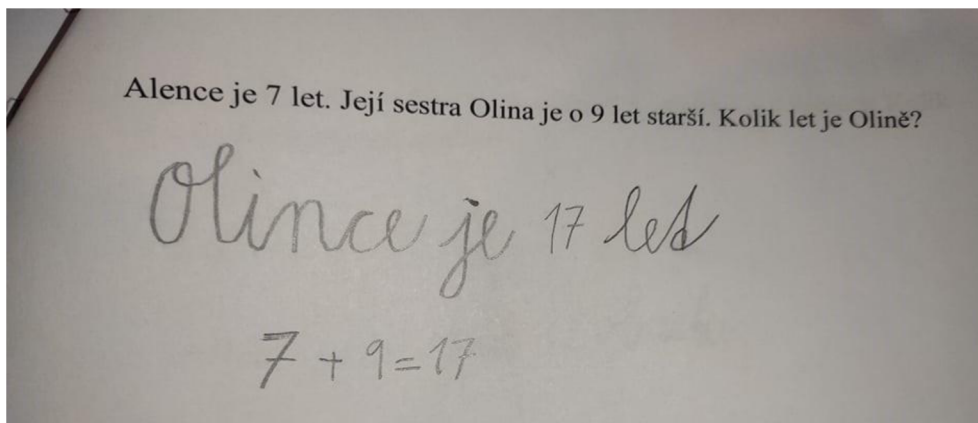 Alence je 7 let. Její sestra Olina je o 9 let starší. Kolik let je Olině?
Olince je 17 let
7 + 9 = 17